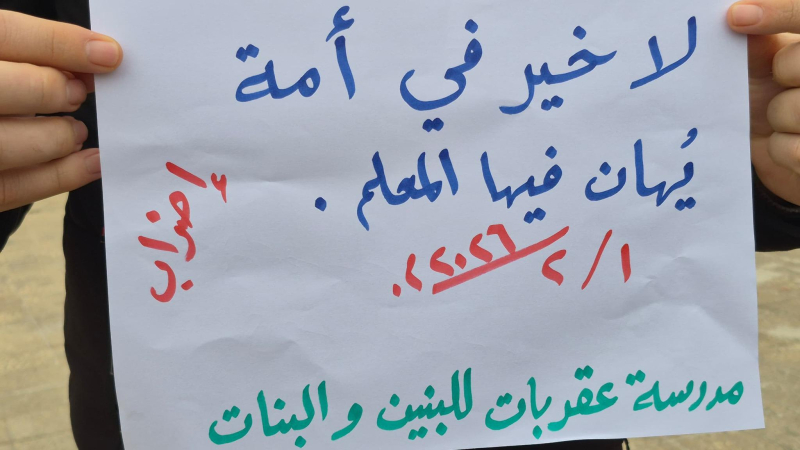 لا خير في أمة
يُهان فيها المعلم .
إضراب
١ / ٢ / ٢٠٢٦ م.
مدرسة عقربات للبنين والبنات